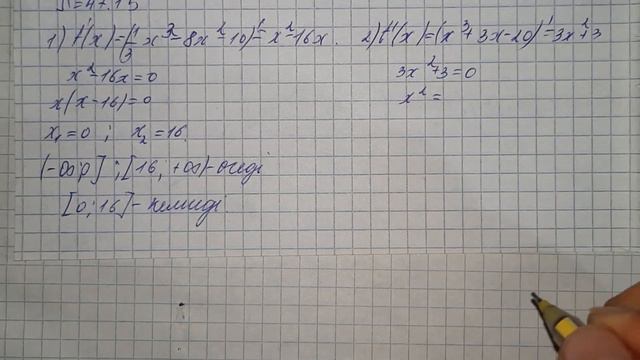 1) f'(x)=(1/3 x³-8x²-10)'=x²-16x.
x²-16x=0
x(x-16)=0
x₁=0 ; x₂=16.
(-∞;0] ; [16; +∞)-өседі
[0;16]-кемиді
2) f'(x)=(x³+3x-20)'=3x²+3
3x²+3=0
x²=